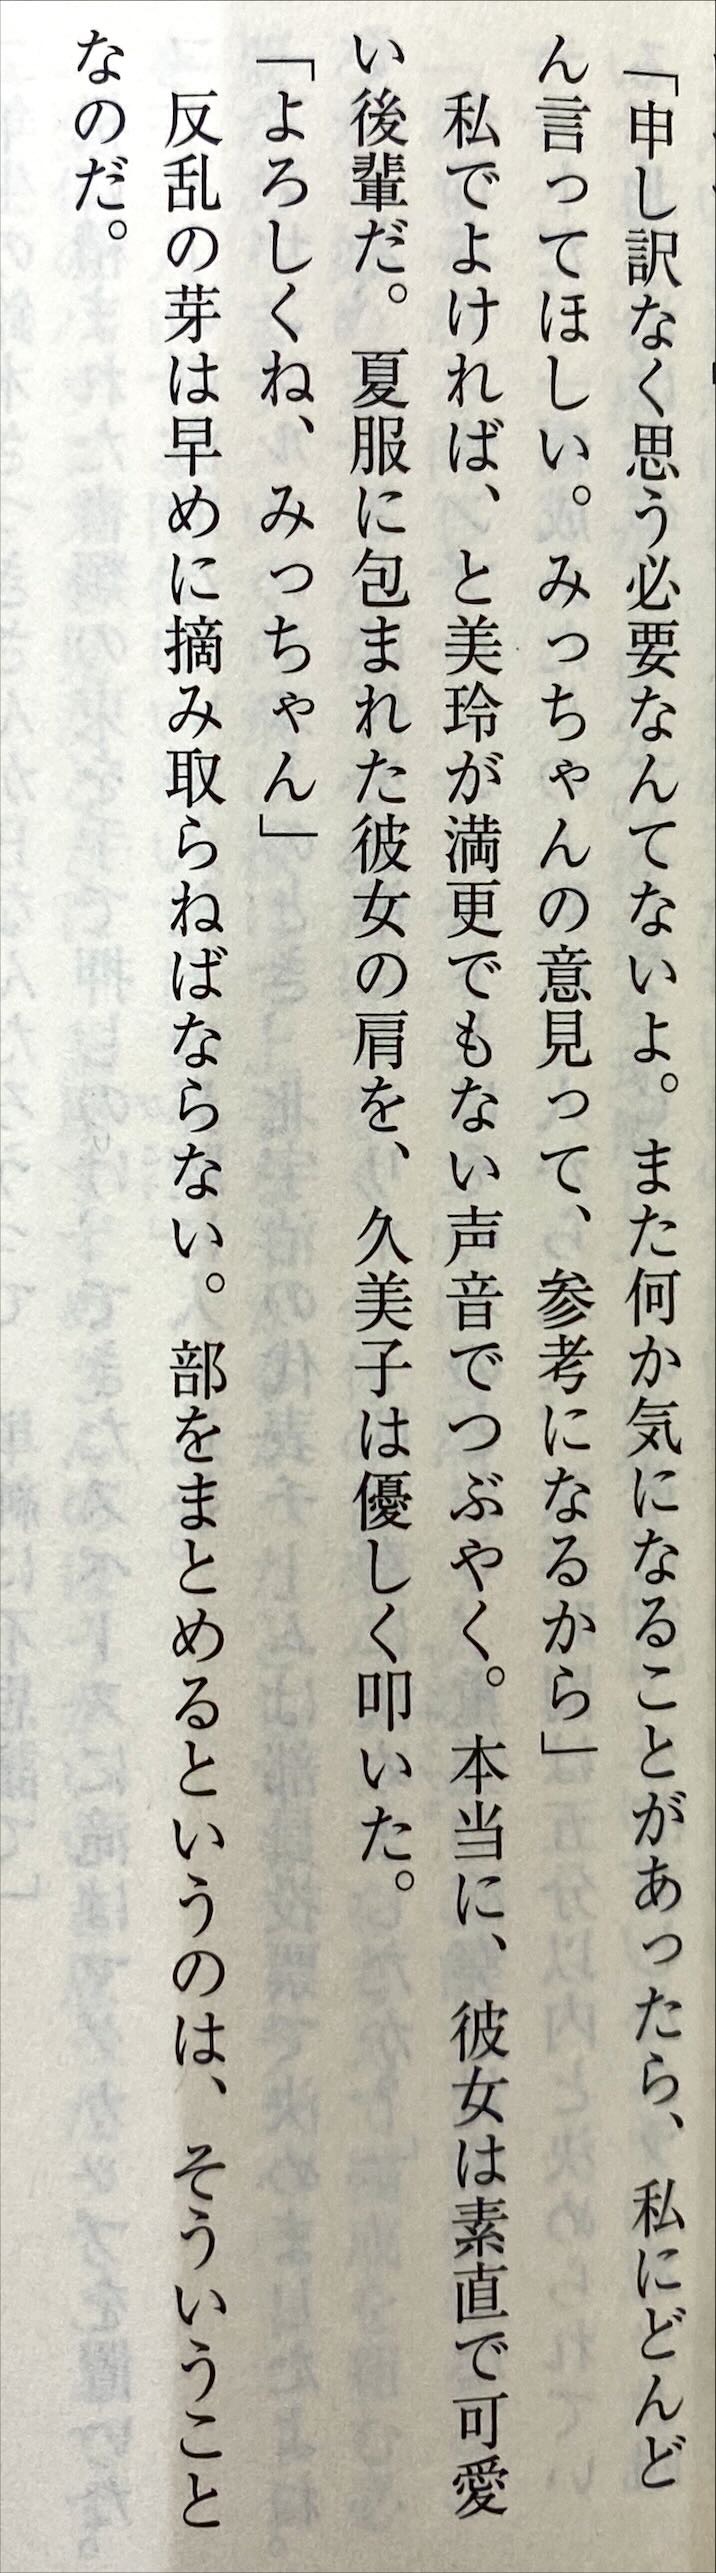 「申し訳なく思う必要なんてないよ。また何か気になることがあったら、私にどんど
ん言ってほしい。みっちゃんの意見って、参考になるから」
　私でよければ、と美玲が満更でもない声音でつぶやく。本当に、彼女は素直で可愛
い後輩だ。夏服に包まれた彼女の肩を、久美子は優しく叩いた。
「よろしくね、みっちゃん」
　反乱の芽は早めに摘み取らねばならない。部をまとめるというのは、そういうこと
なのだ。